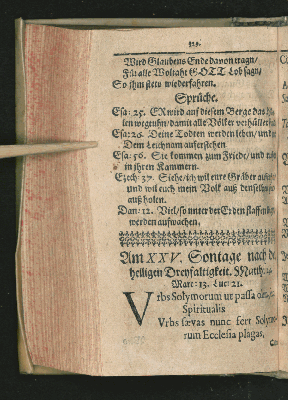 129.
Wird Glaubens Ende davon tragn/
Für alle Wolthat GOTT Lob sagn/
So ihm stets wiederfahren.
Sprüche.
Esa: 25. ER wird auf diesem Berge das
len wegthun/ damit alle Völcker verhüllet
Esa: 26. Deine Todten werden leben/ und
Dem Leichnam auferstehen
Esa: 56. Sie kommen zum Friede/ und
in ihren Kammern.
Ezech: 37. Siehe/ ich wil eure Gräber auf
und wil euch mein Volk auß denselben
auß holen.
Dan: 12. Viel/ so unter der Erden
werden aufwachen.
Am XXV. Sontage nach de
heiligen Dreyfaltigkeit. Matth: 24
Marc: 13. Luc: 21.
Vrbs Solymorum ut passa
Spiritualis
Vrbs sævas nunc fert Soly-
rum Ecclesia plagas,